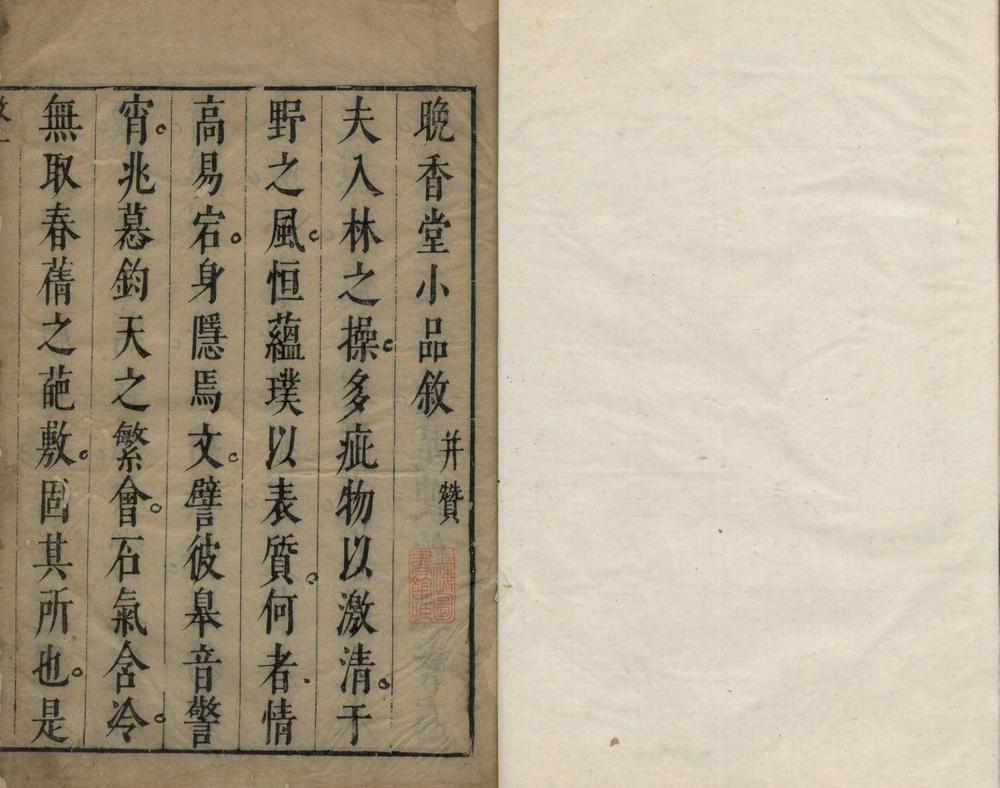 晚香堂小品敘并贊
夫入林之操。多疵物以激清。于
野之風。恒蘊璞以表質。何者情
高易宕。身隱焉文。譬彼皋音警
宵。兆慕鈞天之繁會。石氣含冷。
無取春蒨之葩敷。固其所也。是
上海圖
書館藏